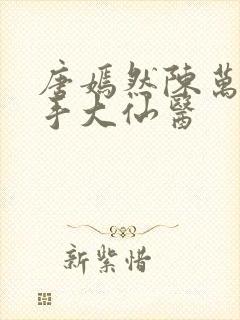 唐嫣然陳萬
手大仙醫
新紫惜